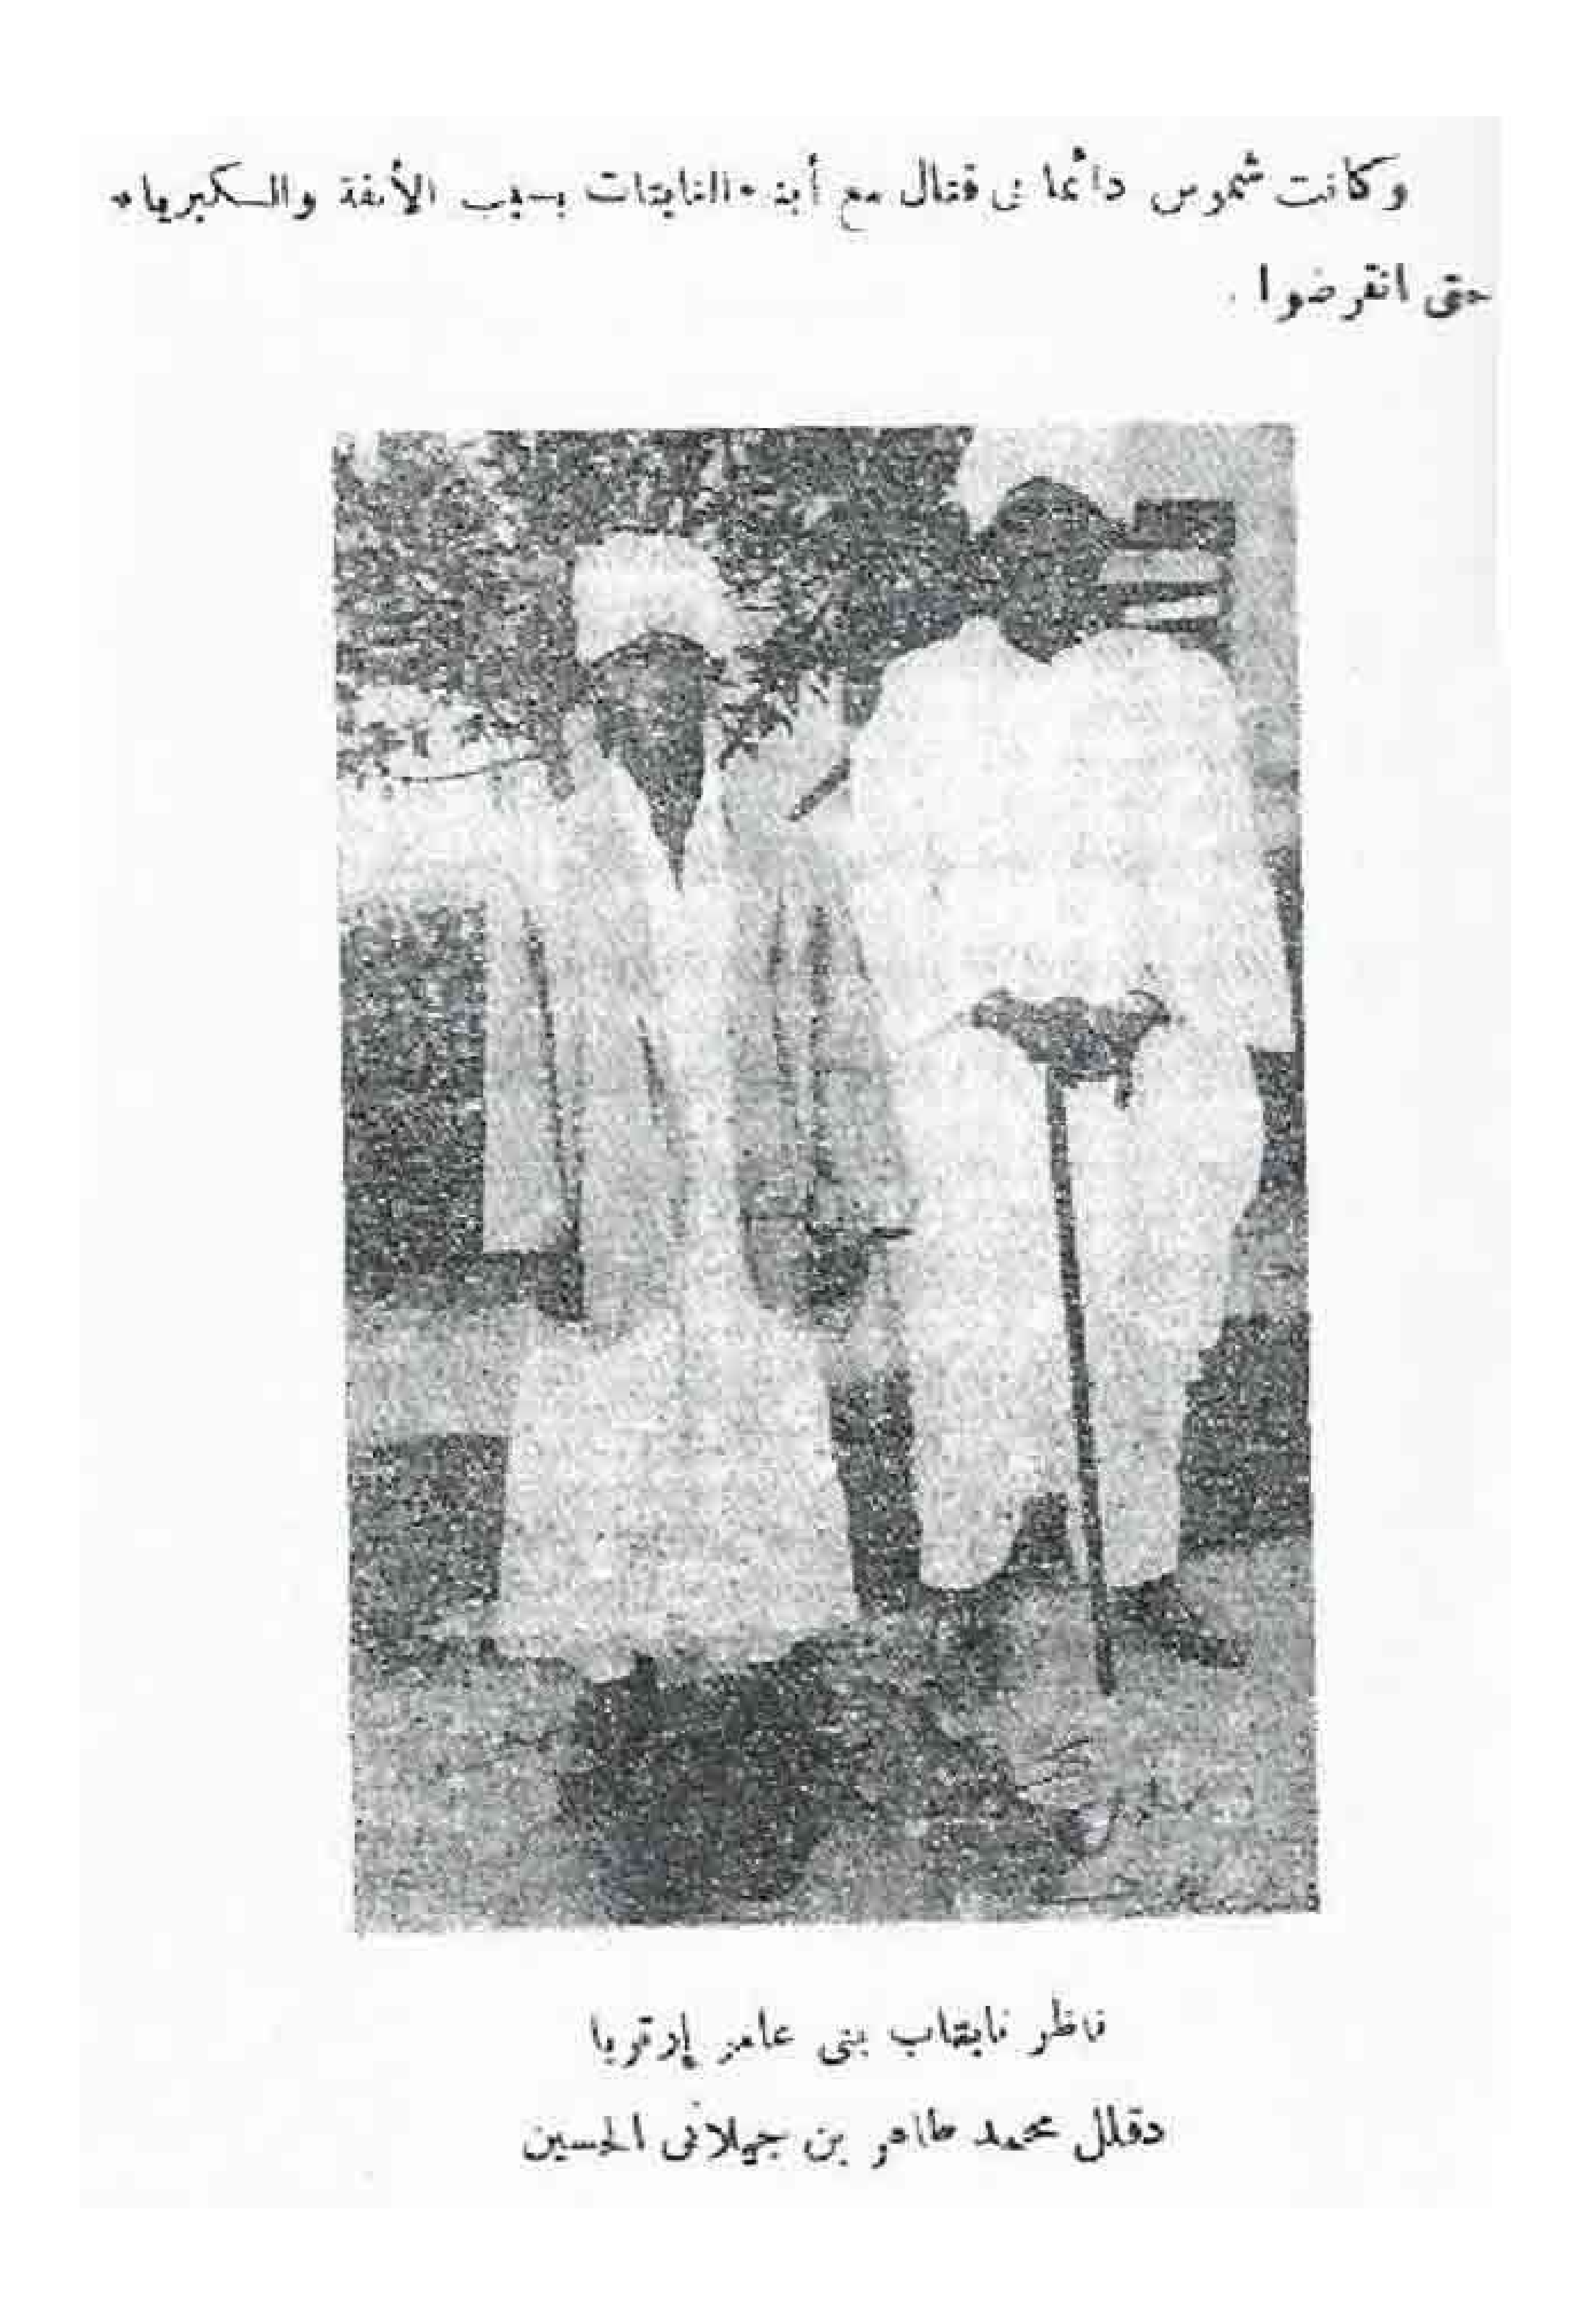 وكانت شموس دائما فى قتال مع أبناء النابتات بسبب الأنفة والكبرياء
حتى انقرضوا .
ناظر نابتاب بنى عامر إرتريا
دقلل محمد طاهر بن جيلانى الحسين